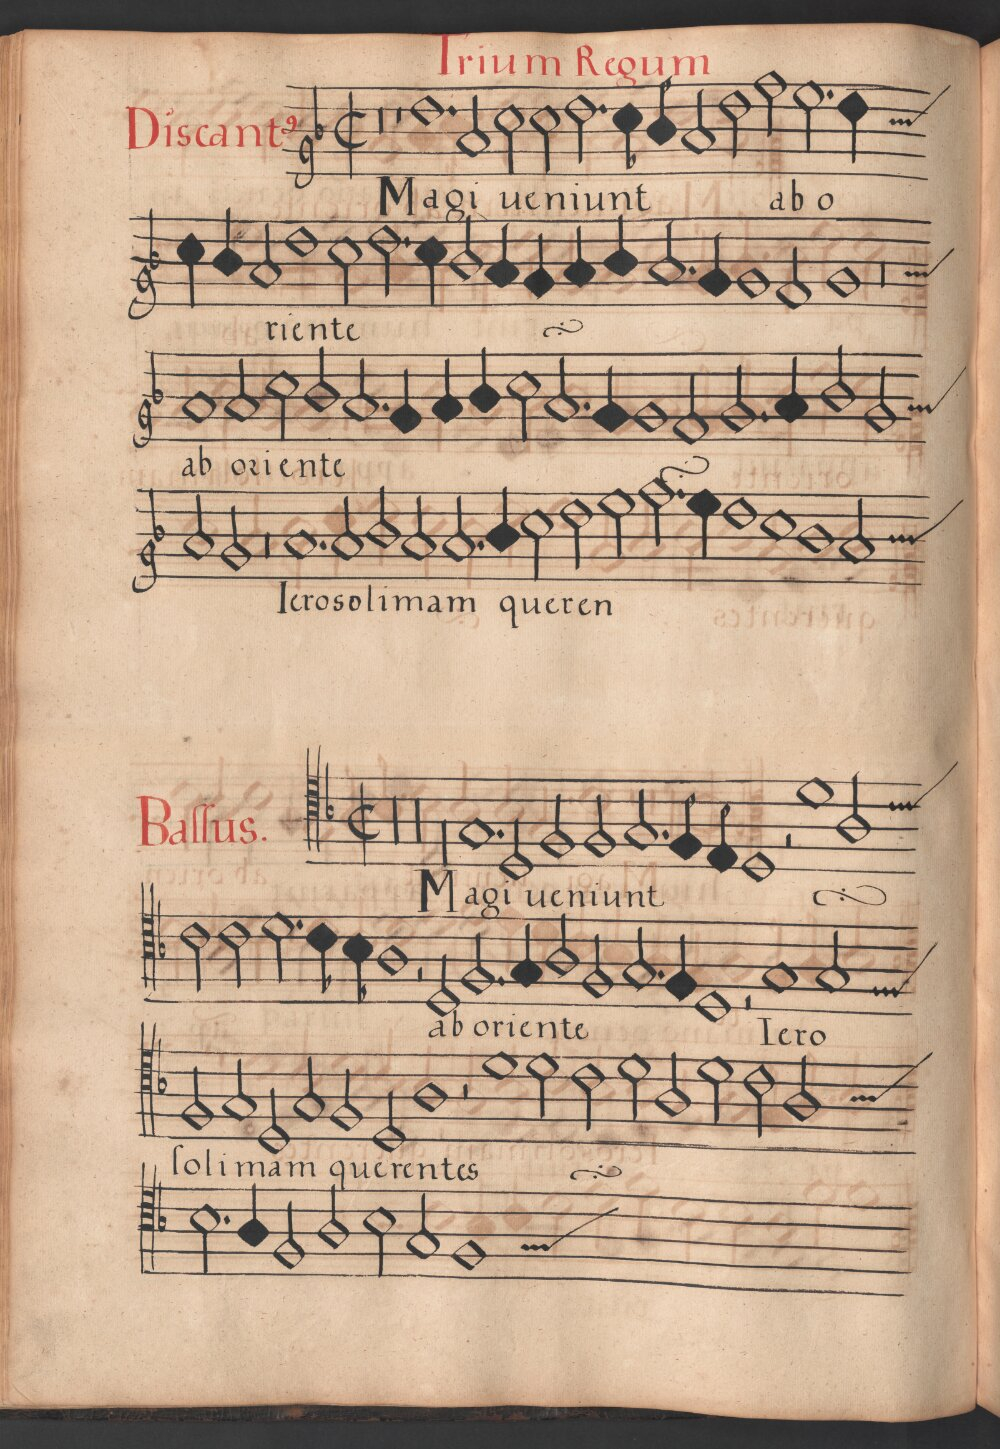 Trium Regum
Discantꝰ
Magi ueniunt ab o
riente
ab oriente
Ierosolimam queren
Baſſus.
Magi ueniunt
ab oriente Iero
ſolimam querentes